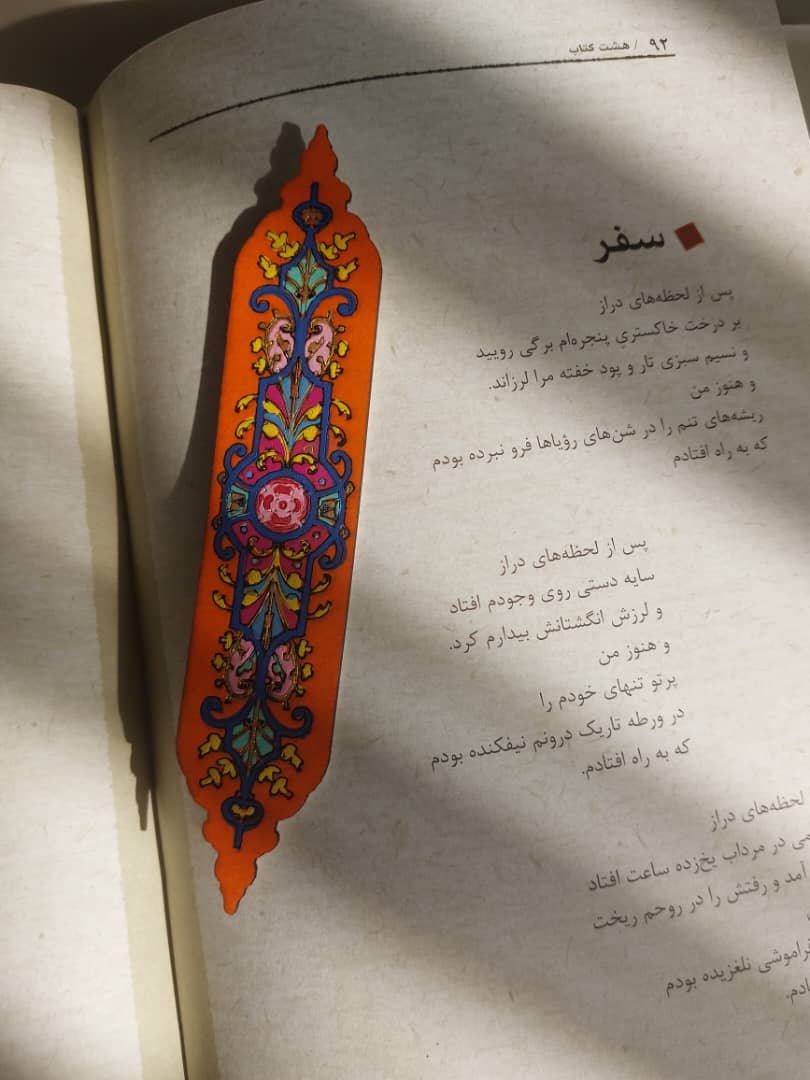 ۹۲ / هشت کتاب
سفر
پس از لحظه‌های دراز
بر درخت خاکستریِ پنجره‌ام برگی رویید
و نسیم سبزی تار و پود خفته مرا لرزاند.
و هنوز من
ریشه‌های تنم را در شن‌های رؤیاها فرو نبرده بودم
که به راه افتادم
پس از لحظه‌های دراز
سایه دستی روی وجودم افتاد
و لرزش انگشتانش بیدارم کرد.
و هنوز من
پرتو تنهای خودم را
در ورطه تاریک درونم نیفکنده بودم
که به راه افتادم.
لحظه‌های دراز
در مرداب یخ‌زده ساعت افتاد
آمد و رفتش را در روحم ریخت
نلغزیده بودم